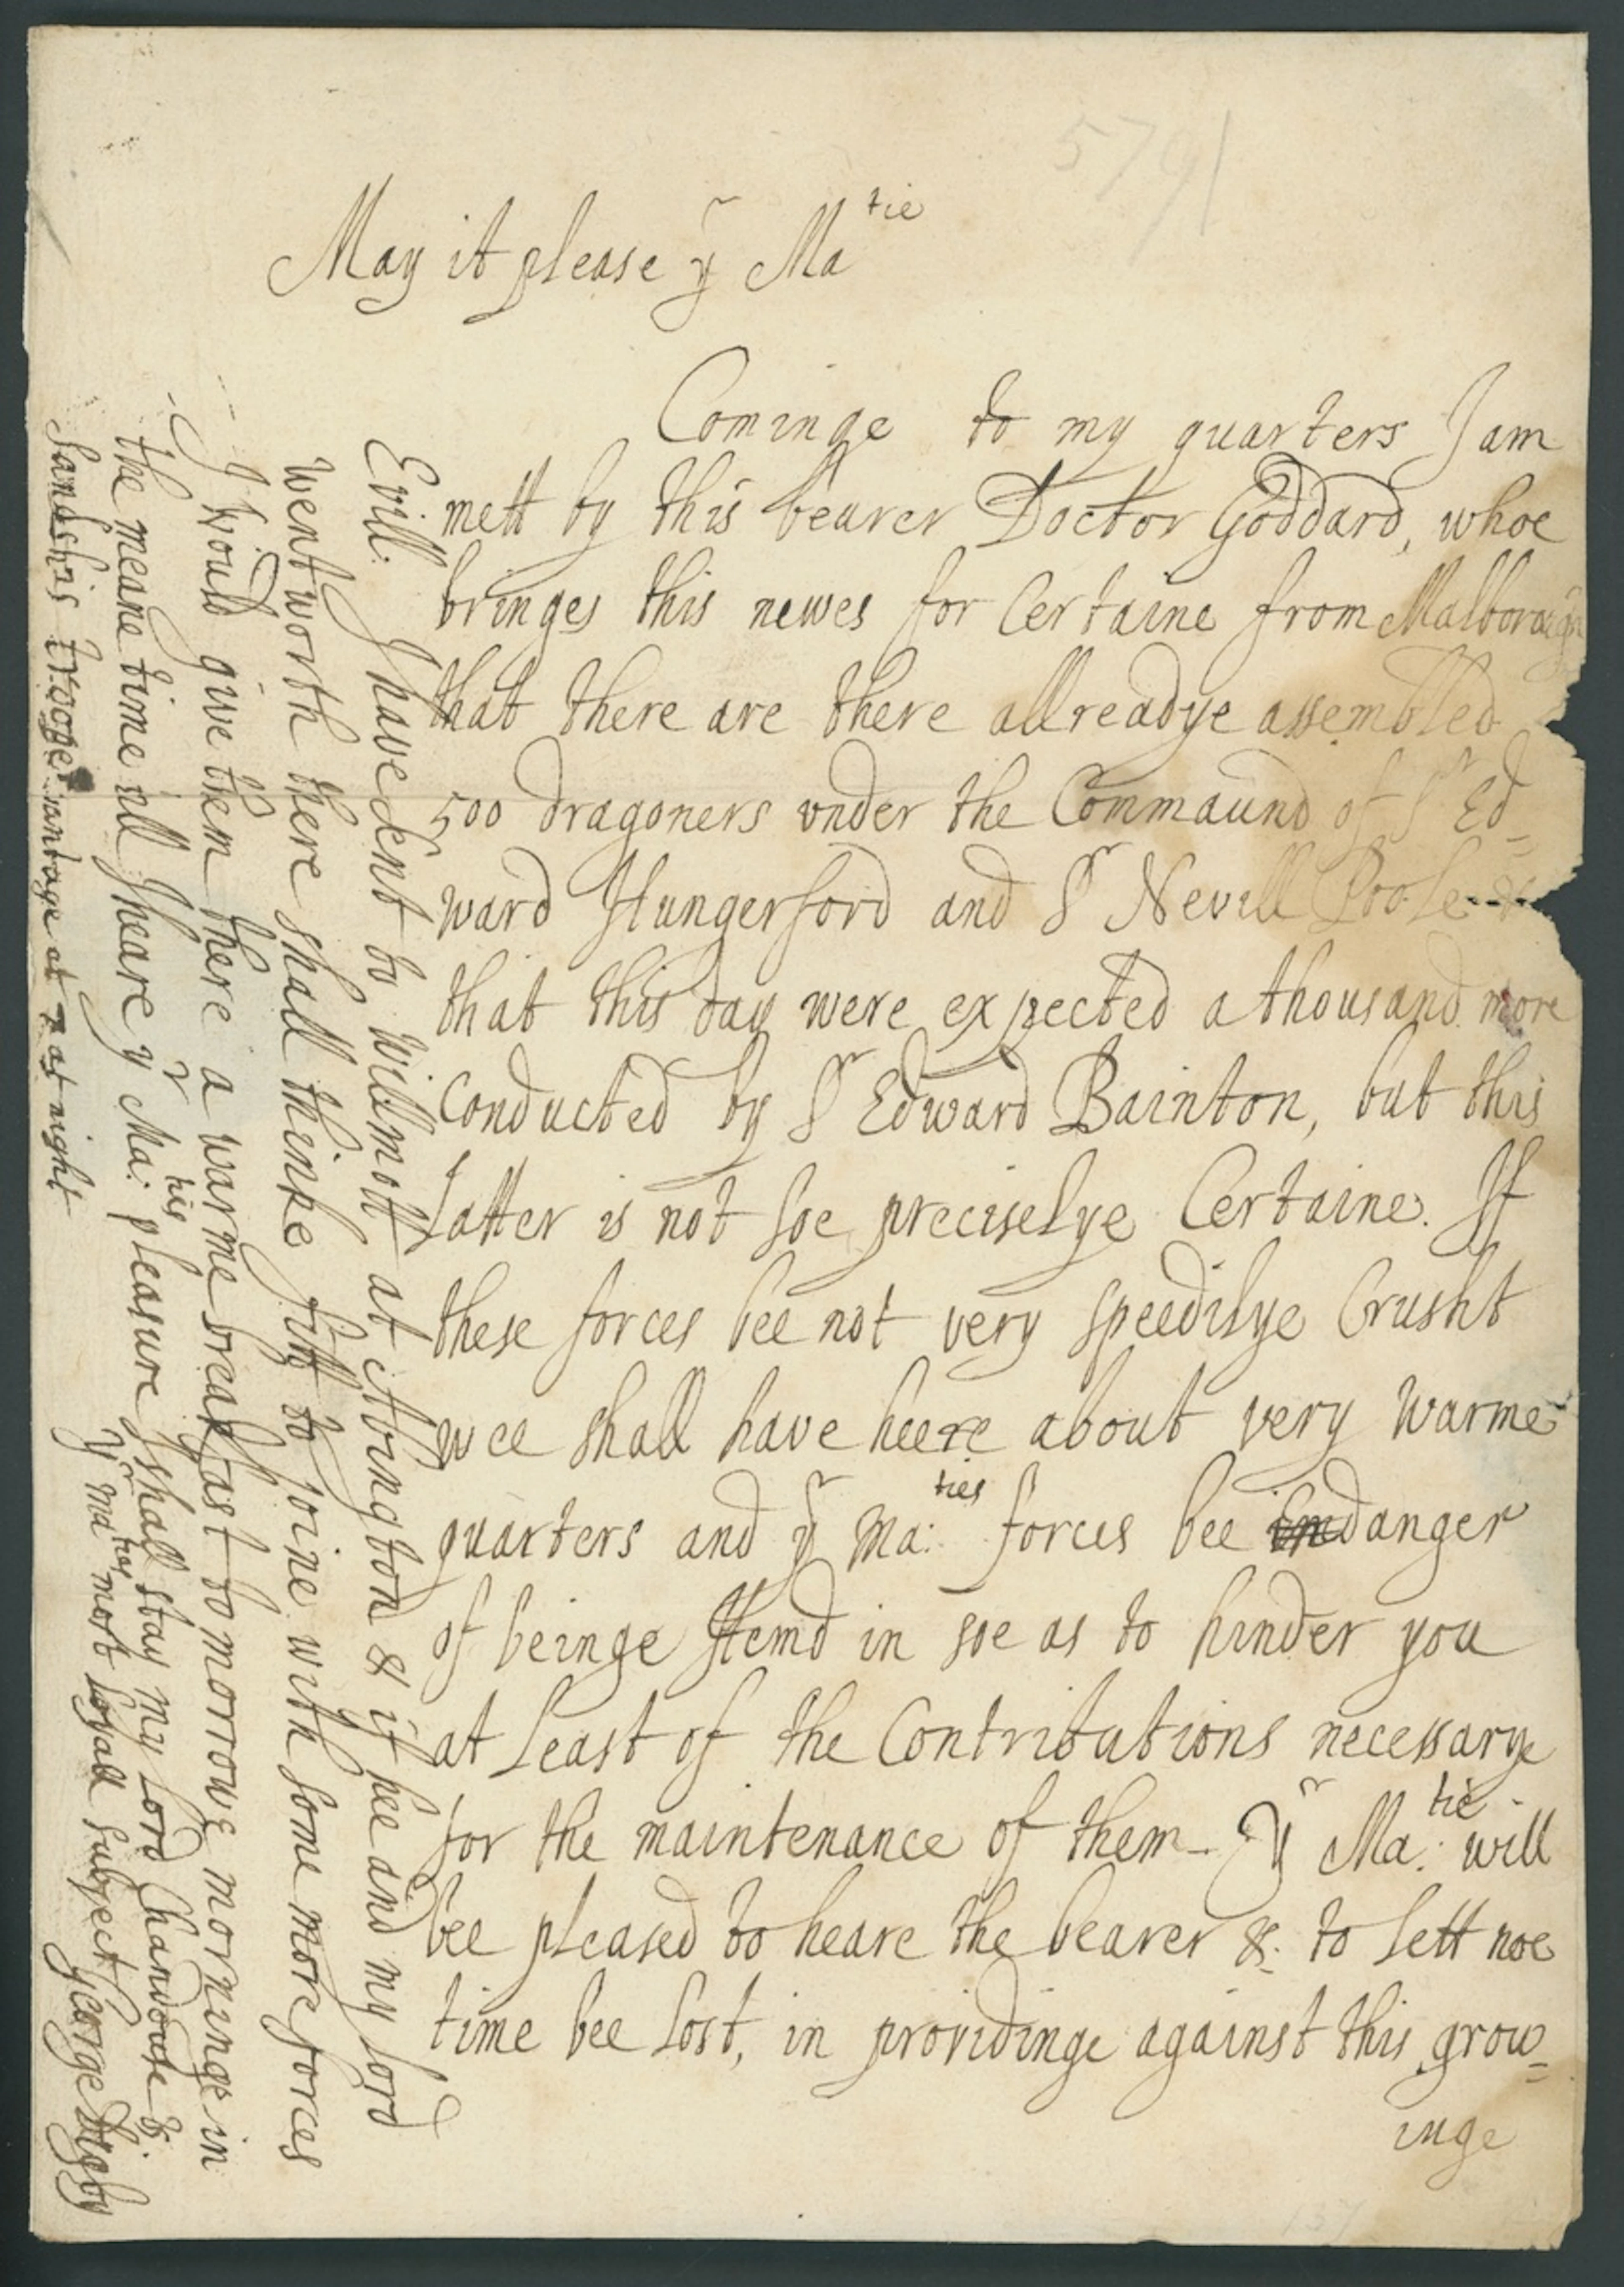 5791
May it please yr Matie
Cominge to my quarters I am
mett by this bearer Doctor Goddard, whoe
bringes this newes for Certaine from Malborough
that there are there allreadye assembled
500 dragoners vnder the Commaund of Sr Ed-
ward Hungerford and Sr Nevill Poole &
that this day were expected a thousand more
Conducted by Sr Edward Bainton, but this
latter is not soe preciselye Certaine. If
these forces bee not very speedilye Crusht
wee shall have heere about very warme
quarters and yr Ma:ties forces bee in danger
of beinge stemd in soe as to hinder you
at least of the Contributions necessarye
for the maintenance of them - Yr Ma:tie will
bee pleased to heare the bearer &. to lett noe
time bee lost, in providinge against this grow=
inge
Evill. I have sent to Willmott at Abington & if hee and my lord
Wentworth there shall thinke fitt to joine with some more forces
I would give them there a warme breakfast to morrowe morninge in
the meane time till I heare yr Ma:ties pleasure I shall stay my lord Chandoise &
Sandes his troope wantage at 7 at night
yr Maties most loyall subject
George Digby